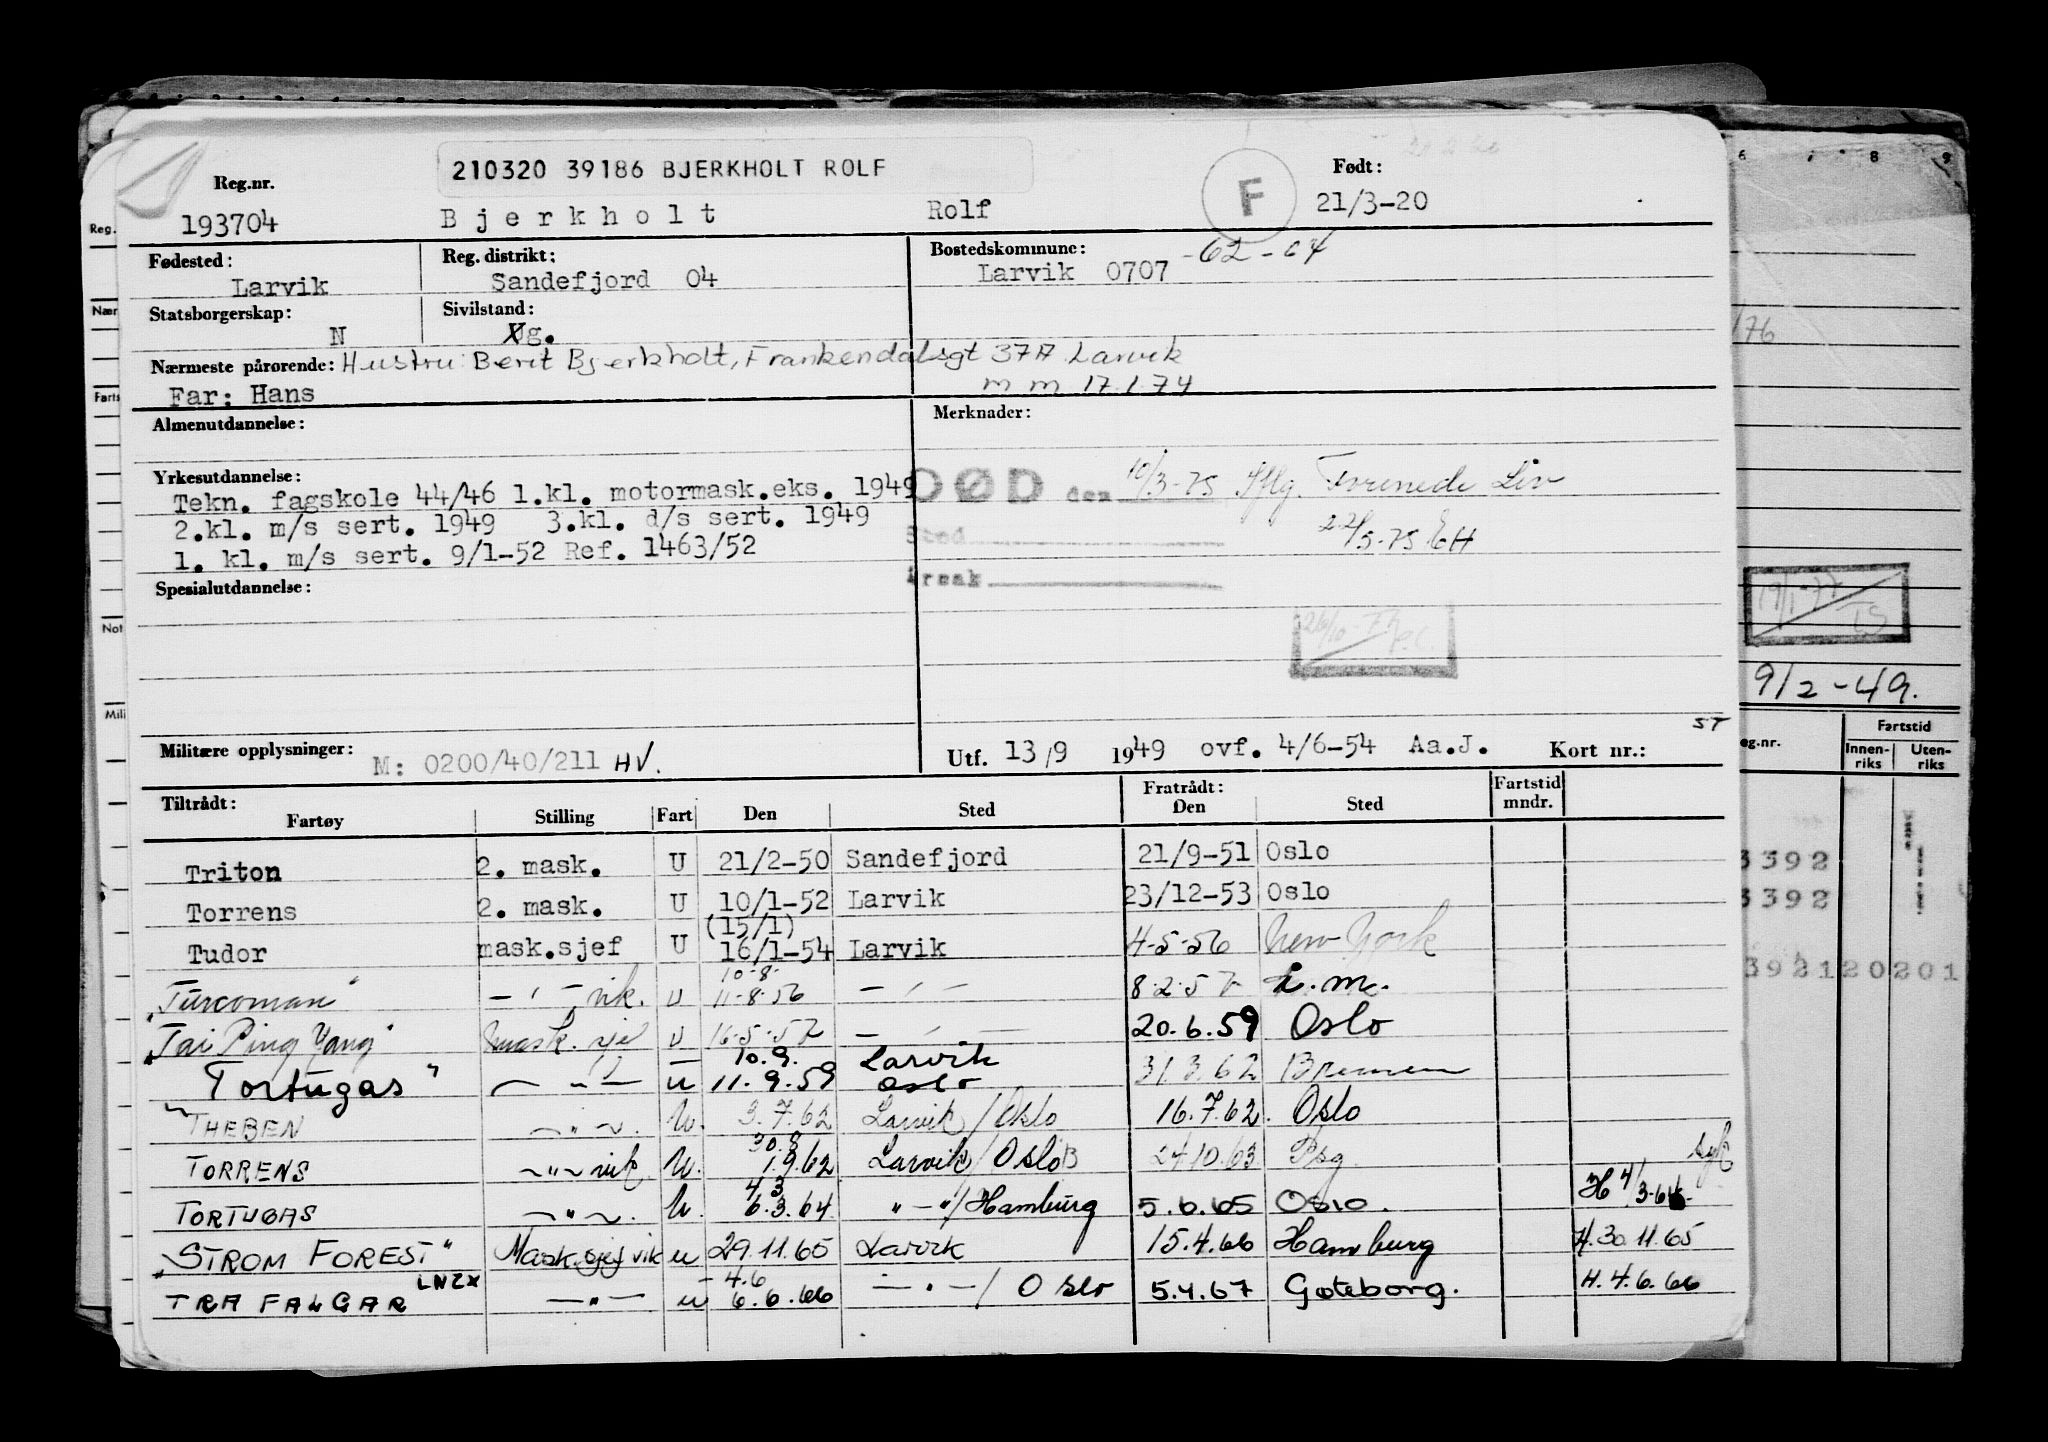 210320 39186 BJERKHOLT ROLF
Reg.nr. Født:
193704 Bjerkholt Rolf F 21/3-20
Fødested: Reg. distrikt: Bostedskommune:
Larvik Sandefjord 04 Larvik 0707 -62-64
Statsborgerskap: Sivilstand:
N g.
Nærmeste pårørende: Hustru Berit Bjerkholt, Frankendalsgt 37A Larvik
m m 17.1.74
Far: Hans
Almenutdannelse: Merknader:
Yrkesutdannelse:
Tekn. fagskole 44/46 1.kl. motormask.eks. 1949
DØD den 10/3-75 Iflg. Forenede Liv
2.kl. m/s sert. 1949 3.kl. d/s sert. 1949
Sted 22/5-75 EH
1. kl. m/s sert. 9/1-52 Ref. 1463/52
Årsak
Spesialutdannelse:
26/10-77
19/1-77
9/2-49.
ST
Militære opplysninger: M: 0200/40/211 HV.
Utf. 13/9 1949 ovf. 4/6-54 Aa.J. Kort nr.:
Tiltrådt: Fratrådt: Fartstid
Fartøy Stilling Fart Den Sted Den Sted mndr.
Triton 2. mask. U 21/2-50 Sandefjord 21/9-51 Oslo
Torrens 2. mask. U 10/1-52 Larvik 23/12-53 Oslo
(15/1)
Tudor mask.sjef U 16/1-54 Larvik 4-5-56 New York
10-8-
"Turcoman" — " — vik. U 11-8-56 — " — 8.2.57 i.m.
"Tai Ping Yang" mask. sjef U 16-5-57 — " — 20.6.59 Oslo
10.9. Larvik
"Tortugas" — " — u 11.9.59 Oslo 31.3.62 Bremen
"THEBEN — " — U. 3.7.62 Larvik / Oslo 16.7.62. Oslo
30.8
TORRENS — " — vik U. 1.9.62 Larvik / Oslo 24.10.63 Psg syk
4.3
TORTUGAS — " — U. 6.3.64 " — " / Hamburg 5.6.65 Oslo. H 4/3-64
"STROM FOREST" Mask.sjef vik u 29.11.65 Larvik 15.4.66 Hamburg H. 30.11.65
LNZX 4.6
TRAFALGAR — " — u 6.6.66 — " — / Oslo 5.4.67 Gøteborg. H. 4.6.66
Reg.
Nær
Farts
Not
Mili
6 7 8 9
/76
eg.nr. Fartstid
Innen-riks Uten-riks
3392
3392
392120201